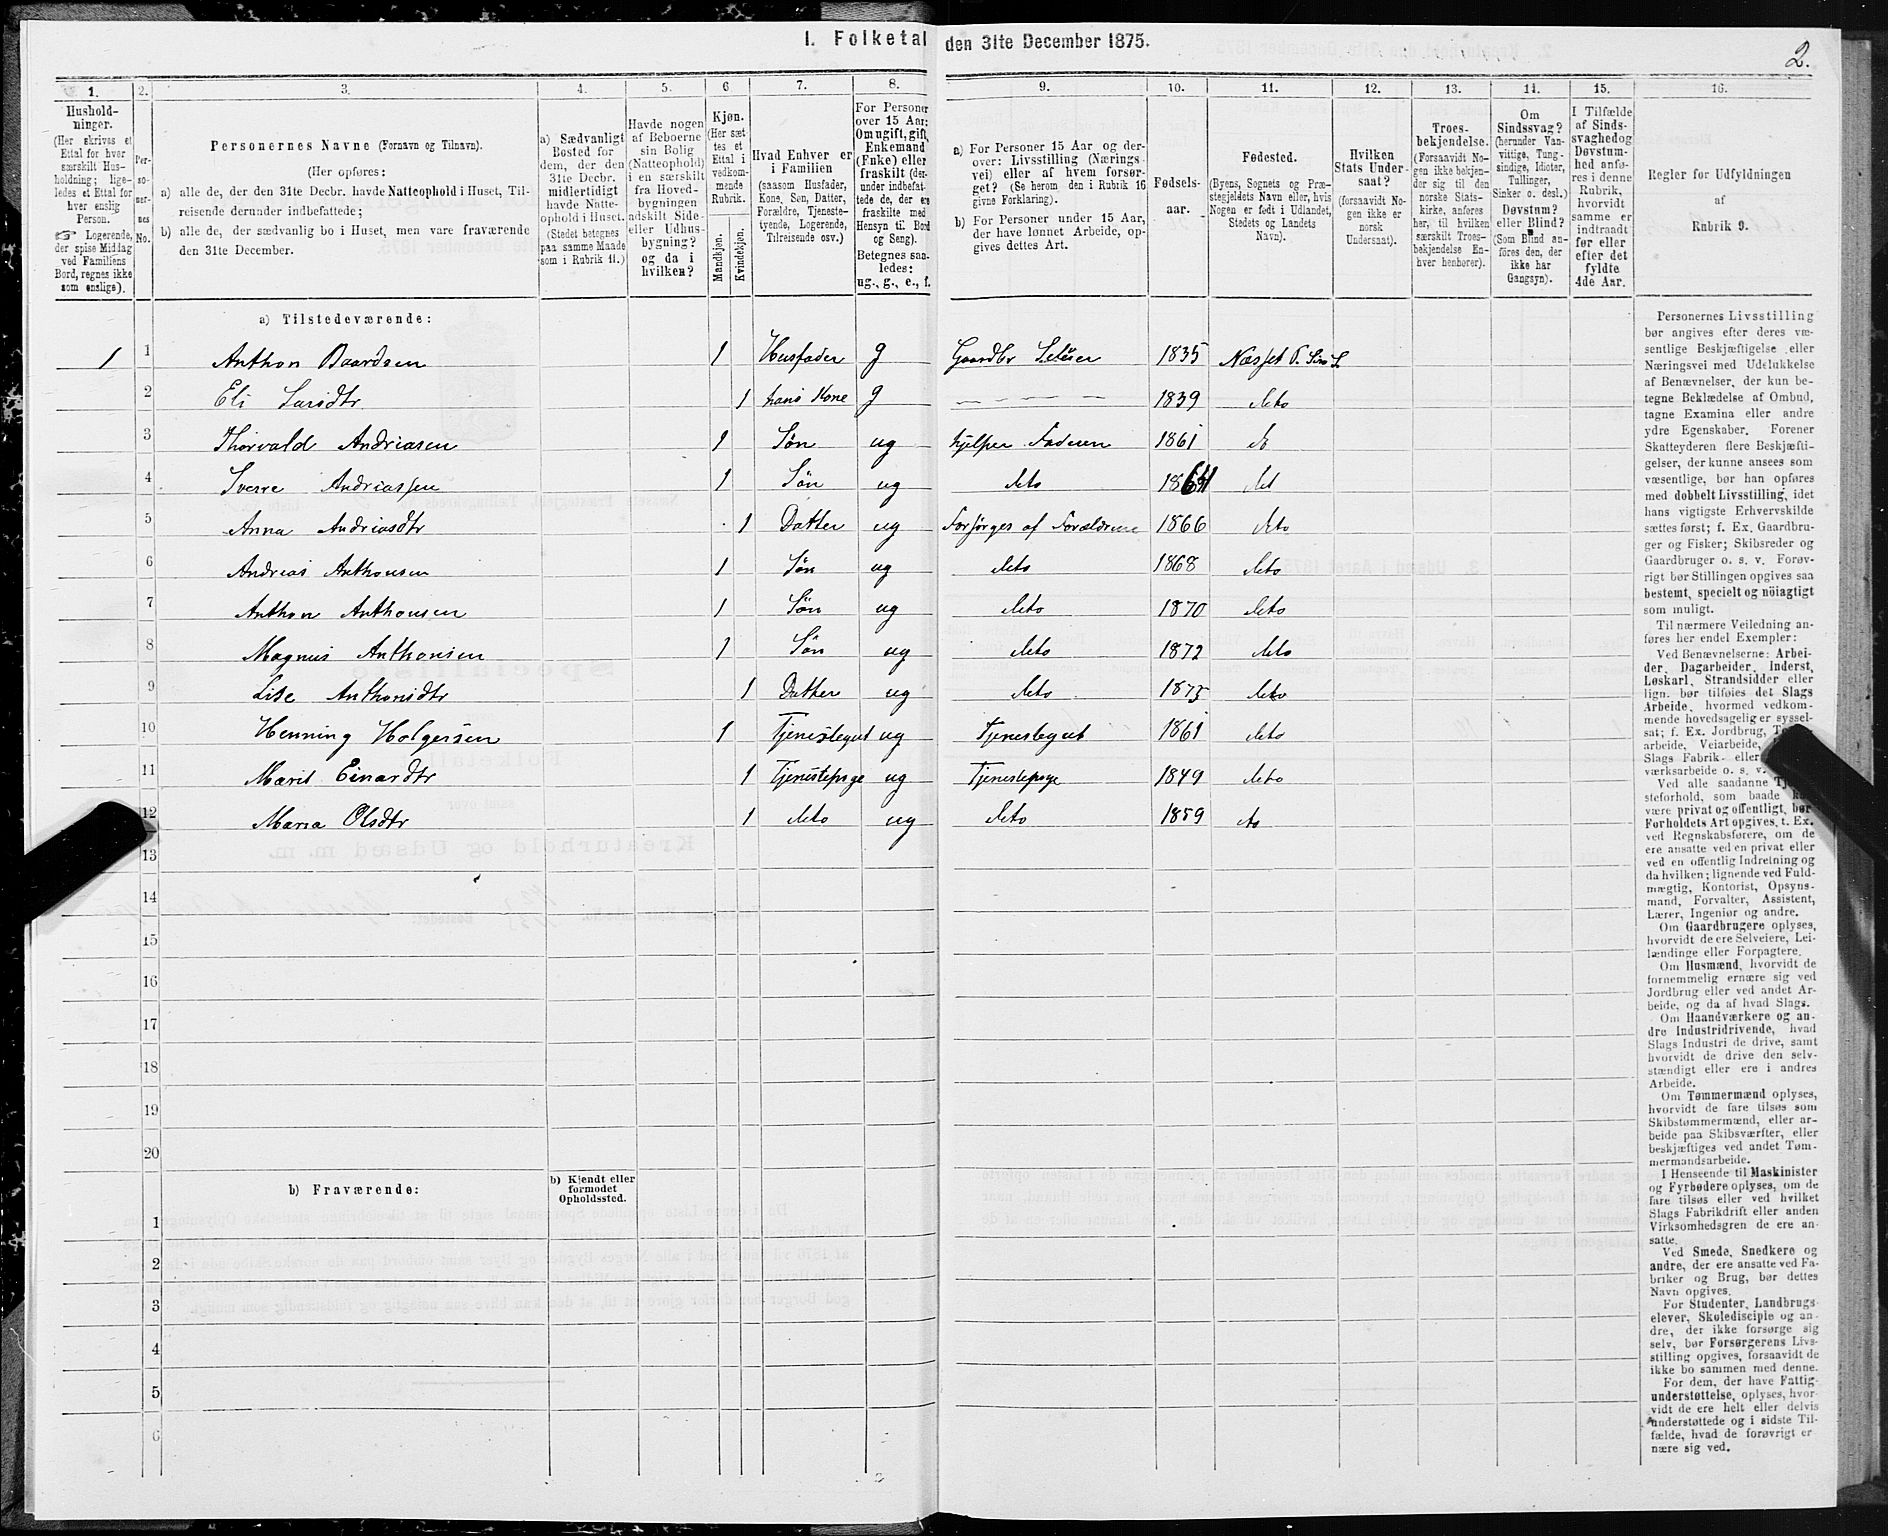 I. Folketal den 31te December 1875.
2.
1. 2. 3. 4. 5. 6. 7. 8. 9. 10. 11. 12. 13. 14. 15. 16.
Hushold-
ninger.
(Her skrives et
Ettal for hver
særskilt Hus-
holdning; lige-
ledes et Ettal for
hver enslig
Person.
☞ Logerende,
der spise Middag
ved Familiens
Bord, regnes ikke
som enslige).
Per-
so-
ner-
nes
No.
Personernes Navne (Fornavn og Tilnavn).
(Her opføres:
a) alle de, der den 31te Decbr. havde Natteophold i Huset, Til-
reisende derunder indbefattede;
b) alle de, der sædvanlig bo i Huset, men vare fraværende
den 31te December.
a) Sædvanligt
Bosted for
dem, der den
31te Decbr.
midlertidigt
havde Natte-
ophold i Huset.
(Stedet betegnes
paa samme Maade
som i Rubrik 11.)
Havde nogen
af Beboerne
sin Bolig
(Natteophold)
i en særskilt
fra Hoved-
bygningen
adskilt Side-
eller Udhus-
bygning?
og da i
hvilken?
Kjøn.
(Her sæt
tes et
Ettal i
vedkom-
mende
Rubrik.
Mandkjøn.
Kvindekjøn.
Hvad Enhver er
i Familien
(saasom Husfader,
Kone, Søn, Datter,
Forældre, Tjeneste-
tyende, Logerende,
Tilreisende osv.)
For Personer
over 15 Aar:
Om ugift, gift,
Enkemand
(Enke) eller
fraskilt (der-
under indbefat-
tede de, der ere
fraskilte med
Hensyn til Bord
og Seng).
Betegnes saa-
ledes:
ug., g., e., f.
a) For Personer 15 Aar og der-
over: Livsstilling (Nærings-
vei) eller af hvem forsør-
get? (Se herom den i Rubrik 16
givne Forklaring).
b) For Personer under 15 Aar,
der have lønnet Arbeide, op-
gives dettes Art.
Fødsels-
aar.
Fødested.
(Byens, Sognets og Præ-
stegjeldets Navn eller, hvis
Nogen er født i Udlandet,
Stedets og Landets
Navn).
Hvilken
Stats Under-
saat?
(forsaavidt No-
gen ikke er
norsk
Undersaat).
Troes-
bekjendelse.
(Forsaavidt No-
gen ikke bekjen-
der sig til den
norske Stats-
kirke, anføres
her, til hvilken
særskilt Troes-
bekjendelse En-
hver henhører).
Om
Sindssvag?
(herunder Van-
vittige, Tung-
sindige, Idioter,
Tullinger,
Sinker o. desl.)
Døvstum?
eller Blind?
(Som Blind an-
føres den, der
ikke har
Gangsyn).
I Tilfælde
af Sinds-
svaghed og
Døvstum-
hed anfø-
res i denne
Rubrik,
hvorvidt
samme er
indtraadt
før eller
efter det
fyldte
4de Aar.
Regler for Udfyldningen
af
Rubrik 9.
a) Tilstedeværende:
1 1 Anthon Baardsen 1 Husfader g Gaardbr Seleier 1835 Nasset P.
2 Eli Larsdtr 1 hans Kone g — — — — 1839 deto
3 Thorvald Andriasen 1 Søn ug hjelper Faderen 1861 d
4 Sverre Andriassen 1 Søn ug deto 1864 det
5 Anna Andriasdtr 1 Datter ug Forsørges af Forældrene 1866 deto
6 Andrias Anthonsen 1 Søn ug deto 1868 deto
7 Anthon Anthonsen 1 Søn ug deto 1870 deto
8 Magnus Anthonsen 1 Søn ug deto 1872 deto
9 Lise Anthonsdtr 1 Datter ug deto 1875 deto
10 Henning Holgersen 1 Tjenestegut ug Tjenestegut 1861 deto
11 Marit Einardtr 1 Tjenestepige ug Tjenestepige 1849 deto
12 Maria Olsdtr 1 deto ug deto 1859 do
13
14
15
16
17
18
19
20
b) Fraværende:
b) Kjendt eller
formodet
Opholdssted.
1
2
3
4
5
6
Personernes Livsstilling
bør angives efter deres væ-
sentlige Beskjæftigelse eller
Næringsvei med Udelukkelse
af Benævnelser, der kun be-
tegne Beklædelse af Ombud,
tagne Examina eller andre
ydre Egenskaber. Forener
Skatteyderen flere Beskjæfti-
gelser, der kunne ansees som
væsentlige, bør han opføres
med dobbelt Livsstilling, idet
hans vigtigste Erhvervskilde
sættes først; f. Ex. Gaardbru-
ger og Fisker; Skibsreder og
Gaardbruger o. s. v. Forøv-
rigt bør Stillingen opgives saa
bestemt, specielt og nöiagtigt
som muligt.
Til nærmere Veiledning an-
føres her endel Exempler:
Ved Benævnelserne: Arbei-
der, Dagarbeider, Inderst,
Løskarl, Strandsidder eller
lign. bør tilføies det Slags
Arbeide, hvormed vedkom-
mende hovedsagelig er syssel-
sat; f. Ex. Jordbrug,
arbeide, Veiarbeide,
Slags Fabrik- eller
værksarbeide o. s. v.
Ved alle saadanne
steforhold, som baade
være privat og offentligt, bør
Forholdets Art opgives, t. Ex.
ved Regnskabsførere, om de
ere ansatte ved en privat eller
ved en offentlig Indretning og
da hvilken; lignende ved Fuld-
mægtig, Kontorist, Opsyns-
mand, Forvalter, Assistent,
Lærer, Ingeniør og andre.
Om Gaardbrugere oplyses,
hvorvidt de ere Selveiere, Lei-
lændinge eller Forpagtere.
Om Husmænd, hvorvidt de
fornemmelig ernære sig ved
Jordbrug eller ved andet Ar-
beide, og da af hvad Slags.
Om Haandværkere og an-
dre Industridrivende, hvad
Slags Industri de drive, samt
hvorvidt de drive den selv-
stændigt eller ere i andres
Arbeide.
Om Tømmermænd oplyses,
hvorvidt de fare tilsøs som
Skibstømmermænd, eller ar-
beide paa Skibsværfter, eller
beskjæftiges ved andet Tøm-
mermandsarbeide.
I Henseende til Maskinister
og Fyrbødere oplyses, om de
fare tilsøs eller ved hvilket
Slags Fabrikdrift eller anden
Virksomhedsgren de ere an-
satte.
Ved Smede, Snedkere og
andre, der ere ansatte ved Fa-
briker og Brug, bør dettes
Navn opgives.
For Studenter, Landbrugs-
elever, Skoledisciple og an-
dre, der ikke forsørge sig
selv, bør Forsørgerens Livs-
stilling opgives, forsaavidt de
ikke bo sammen med denne.
For dem, der have Fattig-
understøttelse, oplyses, hvor-
vidt de ere helt eller delvis
understøttede og i sidste Til-
fælde, hvad de forøvrigt er-
nære sig ved.